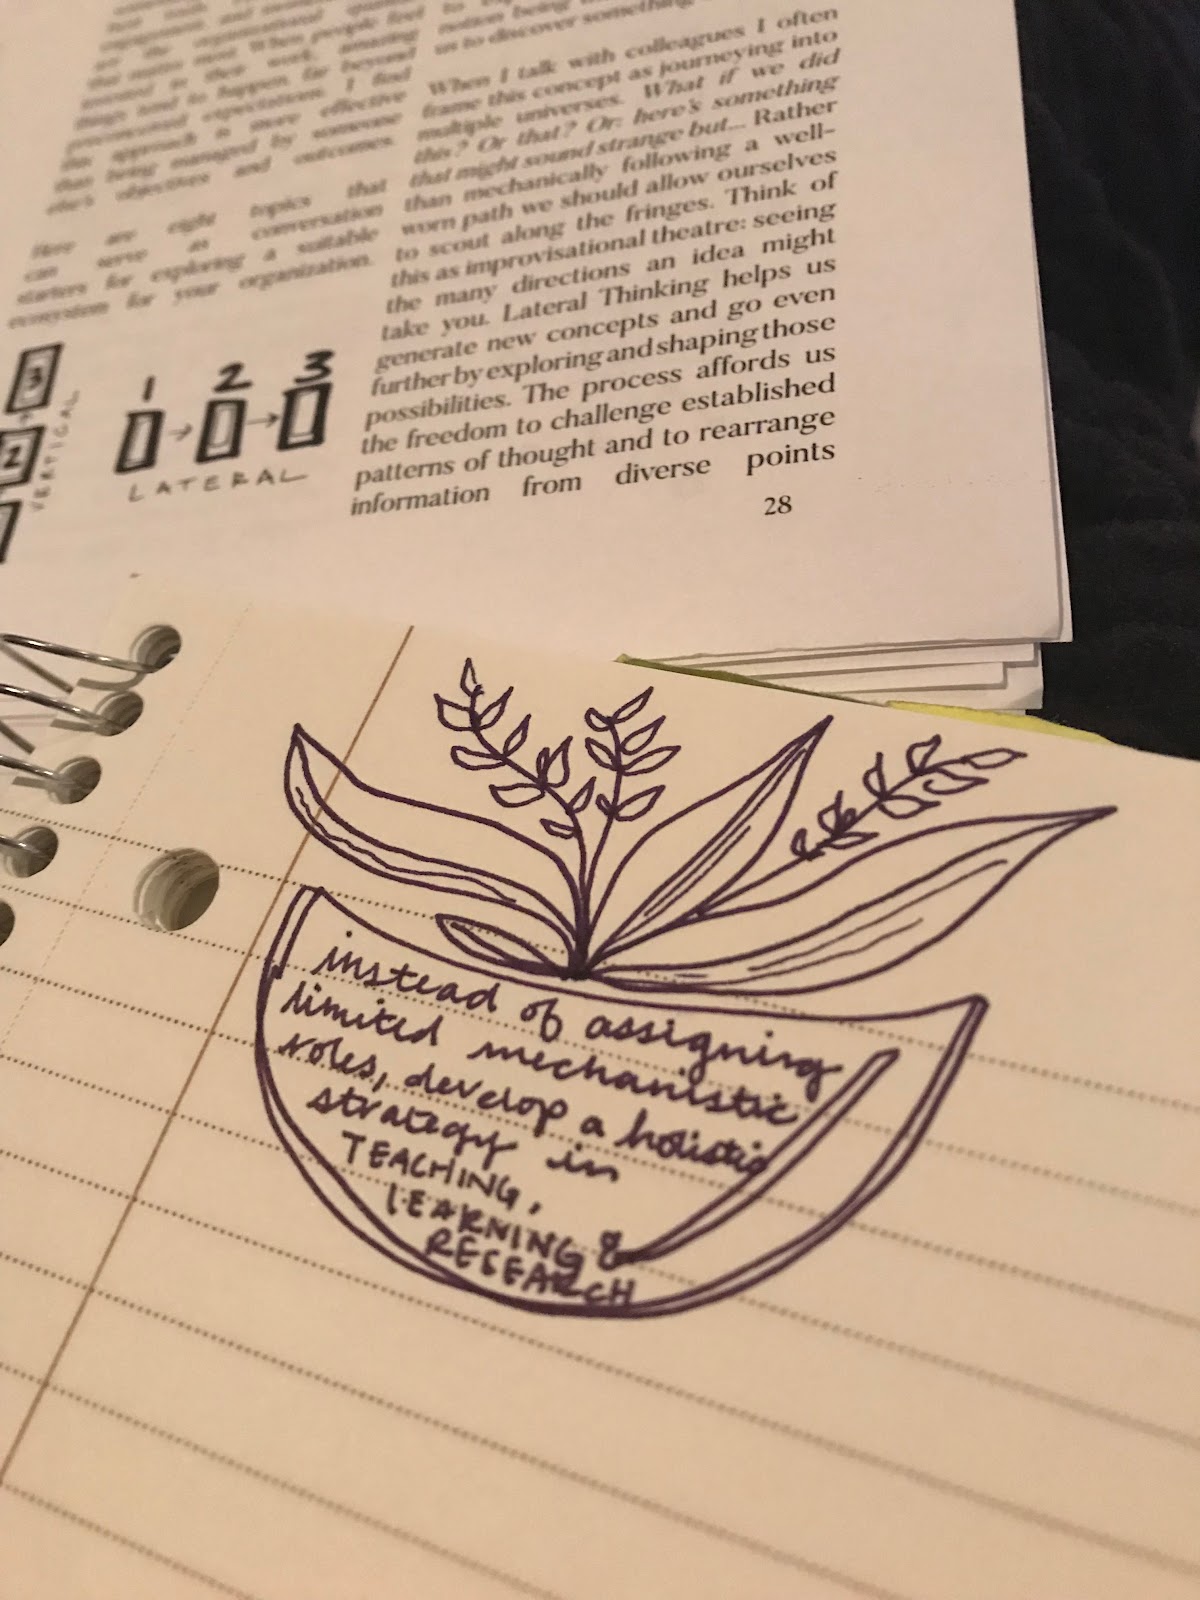 that matters most. When people feel
trusted in their work, amazing
things tend to happen, far beyond
preconceived expectations. I find
this approach is more effective
than being managed by someone
else's objectives and outcomes.
Here are eight topics that
can serve as conversation
starters for exploring a suitable
ecosystem for your organization.
3
2
VERTICAL
1 2 3
LATERAL
notion being
us to discover something
When I talk with colleagues I often
frame this concept as journeying into
multiple universes. What if we did
this? Or that? Or: here's something
that might sound strange but... Rather
than mechanically following a well-
worn path we should allow ourselves
to scout along the fringes. Think of
this as improvisational theatre: seeing
the many directions an idea might
take you. Lateral Thinking helps us
generate new concepts and go even
further by exploring and shaping those
possibilities. The process affords us
the freedom to challenge established
patterns of thought and to rearrange
information from diverse points
28
instead of assigning
limited mechanistic
roles, develop a holistic
strategy in
TEACHING,
LEARNING &
RESEARCH